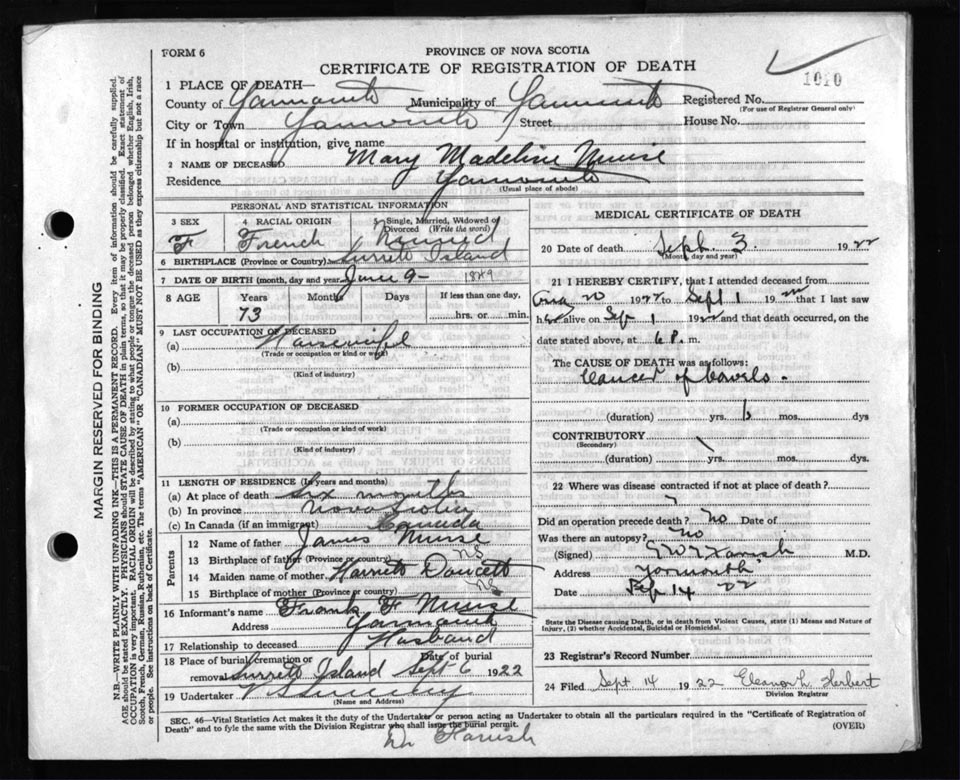 FORM 6
PROVINCE OF NOVA SCOTIA
CERTIFICATE OF REGISTRATION OF DEATH
1010
1 PLACE OF DEATH—
County of Yarmouth Municipality of Yarmouth Registered No.
(For use of Registrar General only)
City or Town Yarmouth Street House No.
If in hospital or institution, give name
2 NAME OF DECEASED Mary Madeline Muise
Residence Yarmouth
(Usual place of abode)
PERSONAL AND STATISTICAL INFORMATION
3 SEX 4 RACIAL ORIGIN 5 Single, Married, Widowed or Divorced (Write the word)
F French Married
6 BIRTHPLACE (Province or Country) Surrete Island
7 DATE OF BIRTH (month, day and year) June 9- 1849
8 AGE Years Months Days If less than one day,
73 hrs. or min.
9 LAST OCCUPATION OF DECEASED
(a) Housewife
(Trade or occupation or kind or work)
(b)
(Kind of industry)
10 FORMER OCCUPATION OF DECEASED
(a)
(Trade or occupation or kind of work)
(b)
(Kind of industry)
11 LENGTH OF RESIDENCE (In years and months)
(a) At place of death six months
(b) In province Nova Scotia
(c) In Canada (if an immigrant) Canada
Parents
12 Name of father James Muise
13 Birthplace of father (Province or country) NS
14 Maiden name of mother Harriett Doucett
15 Birthplace of mother (Province or country) NS
16 Informant's name Frank F Muise
Address Yarmouth
17 Relationship to deceased Husband
18 Place of burial, cremation or removal Date of burial
Surrete Island Sept 6 1922
19 Undertaker
(Name and Address)
MEDICAL CERTIFICATE OF DEATH
20 Date of death Sept. 3 1922
(Month, day and year)
21 I HEREBY CERTIFY, that I attended deceased from
Aug 20 1922 to Sept 1 1922 that I last saw
her alive on Sep 1 1922 and that death occurred, on
date stated above, at 6 P. m.
The CAUSE OF DEATH was as follows:
Cancer of bowels.
(duration) yrs. 6 mos. dys
CONTRIBUTORY
(Secondary)
(duration) yrs. mos. dys
22 Where was disease contracted if not at place of death?
Did an operation precede death? No Date of
Was there an autopsy? No
(Signed) Farish M.D.
Address Yarmouth
Date Sep 14 22
State the Disease causing Death, or in death from Violent Causes, state (1) Means and Nature of Injury, (2) whether Accidental, Suicidal or Homicidal.
23 Registrar's Record Number
24 Filed Sept 14 1922 Eleanor L Herbert
Division Registrar
SEC. 46—Vital Statistics Act makes it the duty of the Undertaker or person acting as Undertaker to obtain all the particulars required in the "Certificate of Registration of
Death" and to fyle the same with the Division Registrar who shall issue the burial permit. (OVER)
Dr Farish
MARGIN RESERVED FOR BINDING
N.B.—WRITE PLAINLY WITH UNFADING INK—THIS IS A PERMANENT RECORD. Every item of information should be carefully supplied.
AGE should be stated EXACTLY. PHYSICIANS should STATE CAUSE OF DEATH in plain terms, so that it may be properly classified. Exact statement of
OCCUPATION is very important. RACIAL ORIGIN will be described by stating to what people or tongue the deceased person belonged, whether English, Irish,
Scotch, French, German, Russian, Ruthenian, etc. The terms "AMERICAN" OR "CANADIAN" MUST NOT BE USED as they express citizenship but not a race
or people. See instructions on back of Certificate.